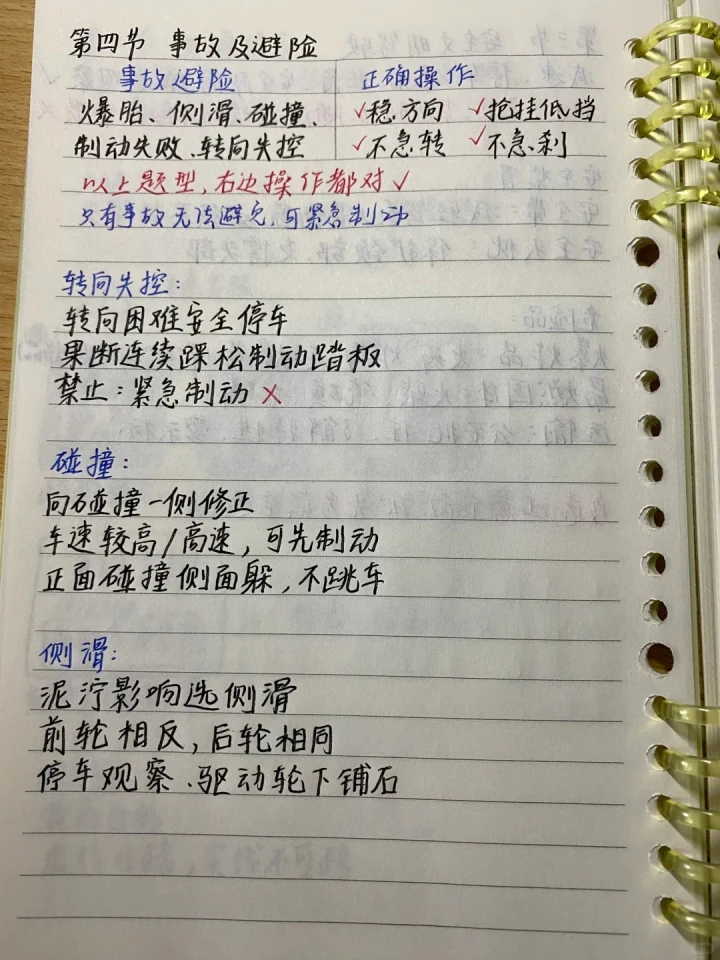 第四节 事故及避险
事故避险 正确操作
爆胎、侧滑、碰撞、 ✓稳方向 ✓抢挂低挡
制动失败、转向失控 ✓不急转 ✓不急刹
以上题型,右边操作都对✓
只有事故无法避免,可紧急制动
转向失控:
转向困难安全停车
果断连续踩松制动踏板
禁止:紧急制动 ×
碰撞:
向碰撞一侧修正
车速较高/高速,可先制动
正面碰撞侧面躲,不跳车
侧滑:
泥泞影响选侧滑
前轮相反,后轮相同
停车观察、驱动轮下铺石